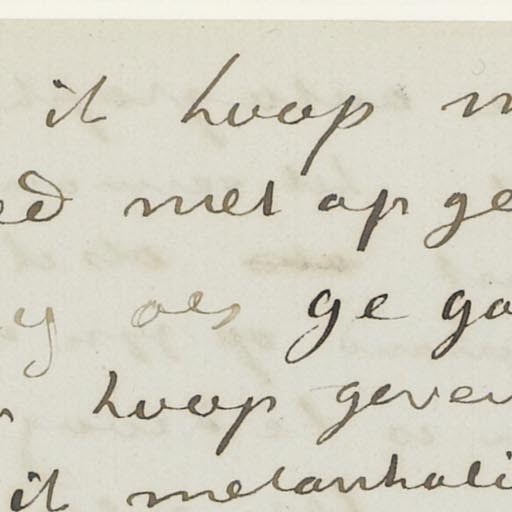 ik hoop m
ed met op ge
y als ge go
hoop geven
ik melankoli